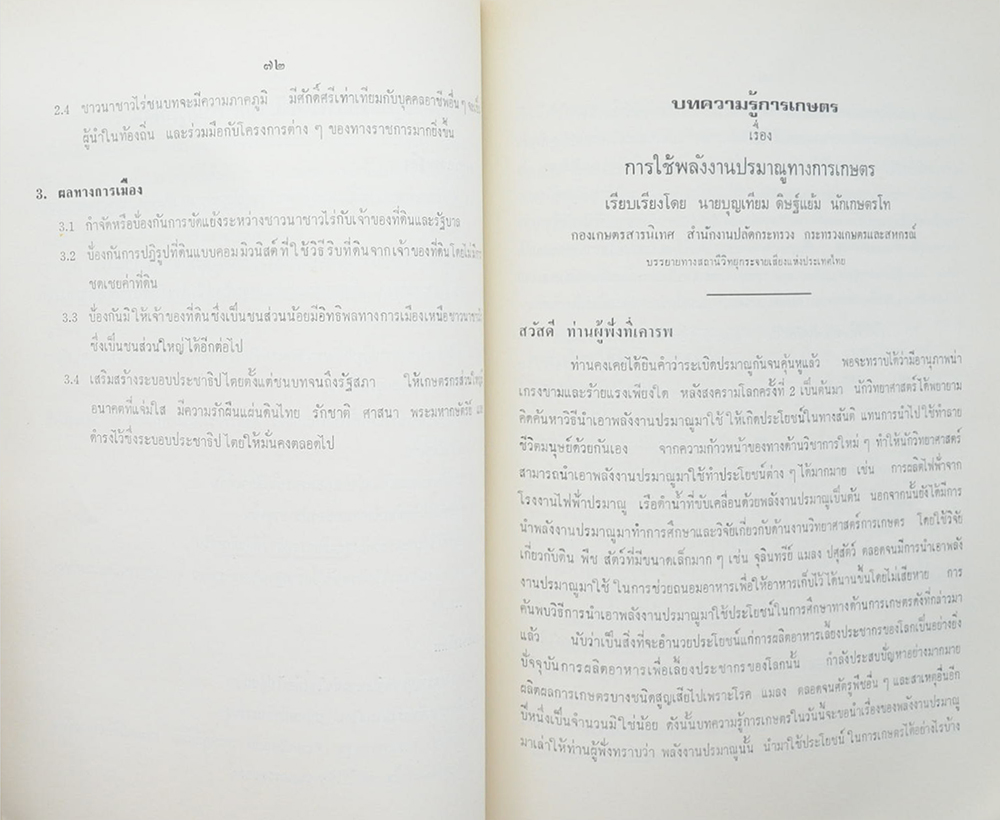 ๗๒
2.4 ชาวนาชาวไร่ชนบทจะมีความภาคภูมิ มีศักดิ์ศรีเท่าเทียมกับบุคคลอาชีพอื่น ๆ
ผู้นำในท้องถิ่น และร่วมมือกับโครงการต่าง ๆ ของทางราชการมากยิ่งขึ้น
3. ผลทางการเมือง
3.1 กำจัดหรือป้องกันการขัดแย้งระหว่างชาวนาชาวไร่กับเจ้าของที่ดินและรัฐบาล
3.2 ป้องกันการปฏิรูปที่ดินแบบคอมมิวนิสต์ ที่ใช้วิธีริบที่ดินจากเจ้าของที่ดินโดยไม่มีการ
ชดเชยค่าที่ดิน
3.3 ป้องกันมิให้เจ้าของที่ดินซึ่งเป็นชนส่วนน้อยมีอิทธิพลทางการเมืองเหนือชาวนาชาวไร่
ซึ่งเป็นชนส่วนใหญ่ได้อีกต่อไป
3.4 เสริมสร้างระบอบประชาธิปไตยตั้งแต่ชนบทจนถึงรัฐสภา ให้เกษตรกรส่วนใหญ่
อนาคตที่แจ่มใส มีความรักผืนแผ่นดินไทย รักชาติ ศาสนา พระมหากษัตริย์
ดำรงไว้ซึ่งระบอบประชาธิปไตยให้มั่นคงตลอดไป
บทความรู้การเกษตร
เรื่อง
การใช้พลังงานปรมาณูทางการเกษตร
เรียบเรียงโดย นายบุญเทียม ดิษฐ์แย้ม นักเกษตรโท
กองเกษตรสารนิเทศ สำนักงานปลัดกระทรวง กระทรวงเกษตรและสหกรณ์
บรรยายทางสถานีวิทยุกระจายเสียงแห่งประเทศไทย
สวัสดี ท่านผู้ฟังที่เคารพ
ท่านคงเคยได้ยินคำว่าระเบิดปรมาณูกันจนคุ้นหูแล้ว พอจะทราบได้ว่ามีอานุภาพน่า
เกรงขามและร้ายแรงเพียงใด หลังสงครามโลกครั้งที่ 2 เป็นต้นมา นักวิทยาศาสตร์ได้พยายาม
คิดค้นหาวิธีนำเอาพลังงานปรมาณูมาใช้ให้เกิดประโยชน์ในทางสันติ แทนการนำไปใช้ทำลาย
ชีวิตมนุษย์ด้วยกันเอง จากความก้าวหน้าของทางด้านวิชาการใหม่ ๆ ทำให้นักวิทยาศาสตร์
สามารถนำเอาพลังงานปรมาณูมาใช้ทำประโยชน์ต่าง ๆ ได้มากมาย เช่น การผลิตไฟฟ้าจาก
โรงงานไฟฟ้าปรมาณู เรือดำน้ำที่ขับเคลื่อนด้วยพลังงานปรมาณูเป็นต้น นอกจากนั้นยังได้มีการ
นำพลังงานปรมาณูมาทำการศึกษาและวิจัยเกี่ยวกับด้านงานวิทยาศาสตร์การเกษตร โดยใช้วิจัย
เกี่ยวกับดิน พืช สัตว์ที่มีขนาดเล็กมาก ๆ เช่น จุลินทรีย์ แมลง ปศุสัตว์ ตลอดจนมีการนำเอาพลัง
งานปรมาณูมาใช้ในการช่วยถนอมอาหารเพื่อให้อาหารเก็บไว้ได้นานขึ้นโดยไม่เสียหาย การ
ค้นพบวิธีการนำเอาพลังงานปรมาณูมาใช้ประโยชน์ในการศึกษาทางด้านการเกษตรดังที่กล่าวมา
แล้ว นับว่าเป็นสิ่งที่จะอำนวยประโยชน์แก่การผลิตอาหารเลี้ยงประชากรของโลกเป็นอย่างยิ่ง
ปัจจุบันการผลิตอาหารเพื่อเลี้ยงประชากรของโลกนั้น กำลังประสบปัญหาอย่างมากมาย
ผลิตผลการเกษตรบางชนิดสูญเสียไปเพราะโรค แมลง ตลอดจนศัตรูพืชอื่น ๆ และสาเหตุอื่นอีก
ปีหนึ่งเป็นจำนวนมิใช่น้อย ดังนั้นบทความรู้การเกษตรในวันนี้จะขอนำเรื่องของพลังงานปรมาณู
มาเล่าให้ท่านผู้ฟังทราบว่า พลังงานปรมาณูนั้น นำมาใช้ประโยชน์ในการเกษตรได้อย่างไรบ้าง